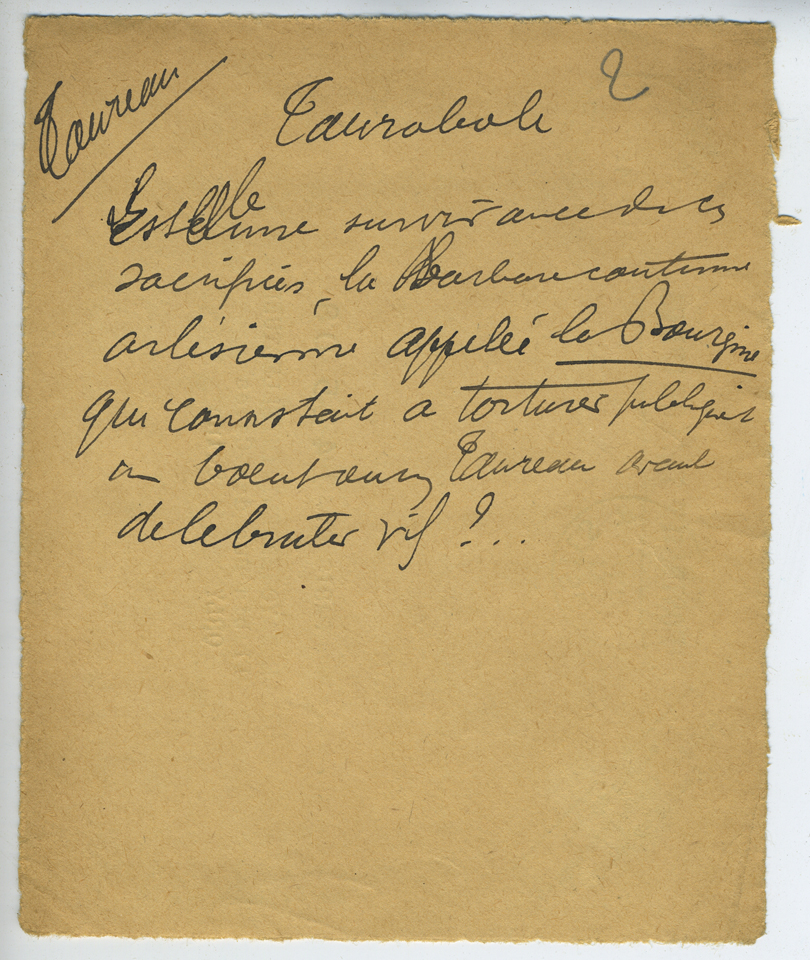 Taureau
2
Taurobole
Est Elle une survivance de ces
sacrifices, la Barbare coutume
arlésienne appelée la Bourgine
qui consistait a torturer publiquet
un boeuf ou un Taureau avant
de le bruler vif ?...